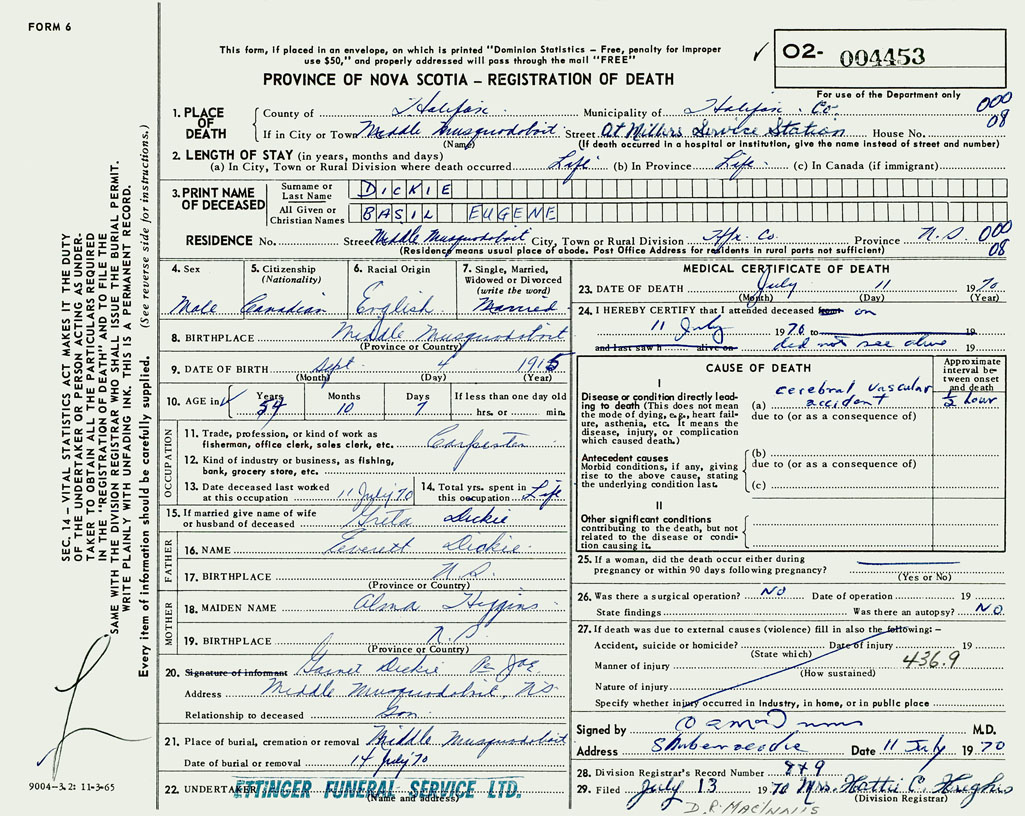 FORM 6
This form, if placed in an envelope, on which is printed "Dominion Statistics – Free, penalty for improper
use $50," and properly addressed will pass through the mail "FREE"
✓ O2- 004453
PROVINCE OF NOVA SCOTIA – REGISTRATION OF DEATH
For use of the Department only
1. PLACE OF DEATH County of Halifax Municipality of Halifax Co. 000
If in City or Town Middle Musquodoboit Street At Millers Service Station House No. 08
(Name) (If death occurred in a hospital or institution, give the name instead of street and number)
2. LENGTH OF STAY (in years, months and days)
(a) In City, Town or Rural Division where death occurred Life (b) In Province Life (c) In Canada (if immigrant)
3. PRINT NAME OF DECEASED Surname or Last Name DICKIE
All Given or Christian Names BASIL EUGENE
RESIDENCE No. Street Middle Musquodoboit City, Town or Rural Division Hfx. Co. Province N.S. 000
(Residence means usual place of abode. Post Office Address for residents in rural parts not sufficient) 08
4. Sex 5. Citizenship (Nationality) 6. Racial Origin 7. Single, Married, Widowed or Divorced (write the word)
Male Canadian English Married
8. BIRTHPLACE Middle Musquodoboit
(Province or Country)
9. DATE OF BIRTH Sept 4 1915
(Month) (Day) (Year)
10. AGE in ✓ Years Months Days If less than one day old
54 10 7 hrs. or min.
OCCUPATION
11. Trade, profession, or kind of work as fisherman, office clerk, sales clerk, etc. Carpenter
12. Kind of industry or business, as fishing, bank, grocery store, etc.
13. Date deceased last worked at this occupation 11 July '70 14. Total yrs. spent in this occupation Life
15. If married give name of wife or husband of deceased Greta Dickie
FATHER
16. NAME Everett Dickie
17. BIRTHPLACE N.S.
(Province or Country)
MOTHER
18. MAIDEN NAME Alma Higgins
19. BIRTHPLACE N.S.
(Province or Country)
20. Signature of informant Garnet Dickie
Address Middle Musquodoboit, N.S.
Relationship to deceased Son
21. Place of burial, cremation or removal Middle Musquodoboit
Date of burial or removal 14 July '70
22. UNDERTAKER ETTINGER FUNERAL SERVICE LTD.
(Name and address)
MEDICAL CERTIFICATE OF DEATH
23. DATE OF DEATH July 11 1970
(Month) (Day) (Year)
24. I HEREBY CERTIFY that I attended deceased from on
11 July 1970 to 19
and last saw h alive on did not see alive 19
CAUSE OF DEATH Approximate interval between onset and death
I
Disease or condition directly leading to death (This does not mean the mode of dying, e.g., heart failure, asthenia, etc. It means the disease, injury, or complication which caused death.)
(a) cerebral vascular accident ½ hour
due to (or as a consequence of)
Antecedent causes
Morbid conditions, if any, giving rise to the above cause, stating the underlying condition last.
(b)
due to (or as a consequence of)
(c)
II
Other significant conditions
contributing to the death, but not related to the disease or condition causing it.
25. If a woman, did the death occur either during pregnancy or within 90 days following pregnancy?
(Yes or No)
26. Was there a surgical operation? NO Date of operation 19
State findings Was there an autopsy? NO
27. If death was due to external causes (violence) fill in also the following: –
Accident, suicide or homicide? Date of injury 19
(State which)
Manner of injury 436.9
(How sustained)
Nature of injury
Specify whether injury occurred in Industry, in home, or in public place
Signed by M.D.
Address Shubenacadie Date 11 July 1970
28. Division Registrar's Record Number 849
29. Filed July 13 1970 Mrs. Hattie C. Hughes
(Division Registrar)
D.R. MACINNIS
SEC. 14 – VITAL STATISTICS ACT MAKES IT THE DUTY
OF THE UNDERTAKER OR PERSON ACTING AS UNDER-
TAKER TO OBTAIN ALL THE PARTICULARS REQUIRED
IN THE "REGISTRATION OF DEATH" AND TO FILE THE
SAME WITH THE DIVISION REGISTRAR WHO SHALL ISSUE THE BURIAL PERMIT.
WRITE PLAINLY WITH UNFADING INK. THIS IS A PERMANENT RECORD.
Every item of information should be carefully supplied. (See reverse side for instructions.)
9004-3.2: 11-3-65